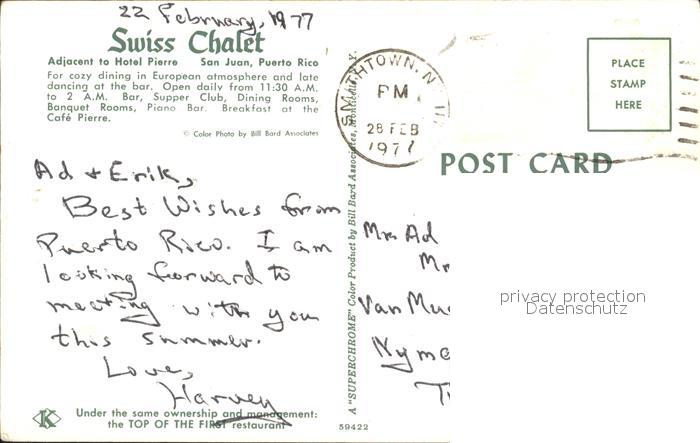 22 February, 1977
Swiss Chalet
Adjacent to Hotel Pierre San Juan, Puerto Rico
For cozy dining in European atmosphere and late
dancing at the bar. Open daily from 11:30 A.M.
to 2 A.M. Bar, Supper Club, Dining Rooms,
Banquet Rooms, Piano Bar. Breakfast at the
Café Pierre.
© Color Photo by Bill Bard Associates
Ad + Erik,
Best Wishes from
Puerto Rico. I am
looking forward to
meeting with you
this summer.
Love,
Harvey
K
Under the same ownership and management:
the TOP OF THE FIRST restaurant
59422
A "SUPERCHROME" Color Product by Bill Bard Associates, Monticello, N. Y.
SMITHTOWN, N.
PM
28 FEB
1977
PLACE
STAMP
HERE
POST CARD
Mrs Ad
Mr
Van Mu
Nyme
privacy protection
Datenschutz